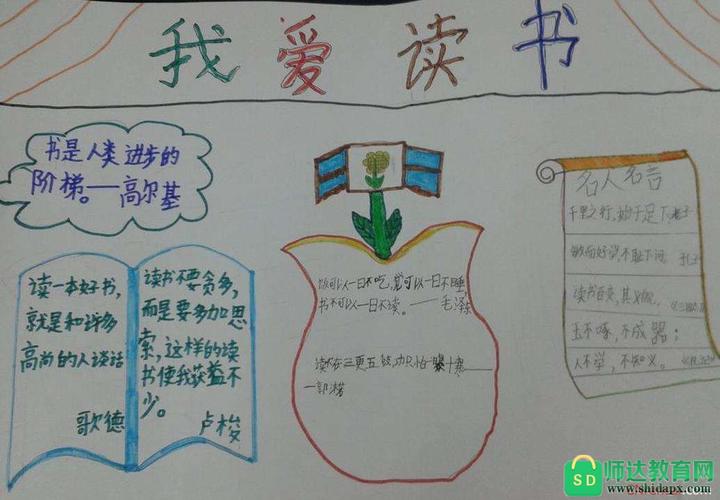 我爱读书
书是人类进步的
阶梯。——高尔基
读一本好书，
就是和许多
高尚的人谈话
歌德
读书不要贪多，
而是要多加思
索，这样的读
书使我获益不
少。
卢梭
饭可以一日不吃，觉可以一日不睡，
书不可以一日不读。——毛泽东
读书三更五
一郭沫
名人名言
千里之行，始于足下，老子
敏而好学，不耻下问 孔子
读书百变，其义
玉不啄，不成器；
人不学，不知义。
师达教育网
www.shidapx.com
SD